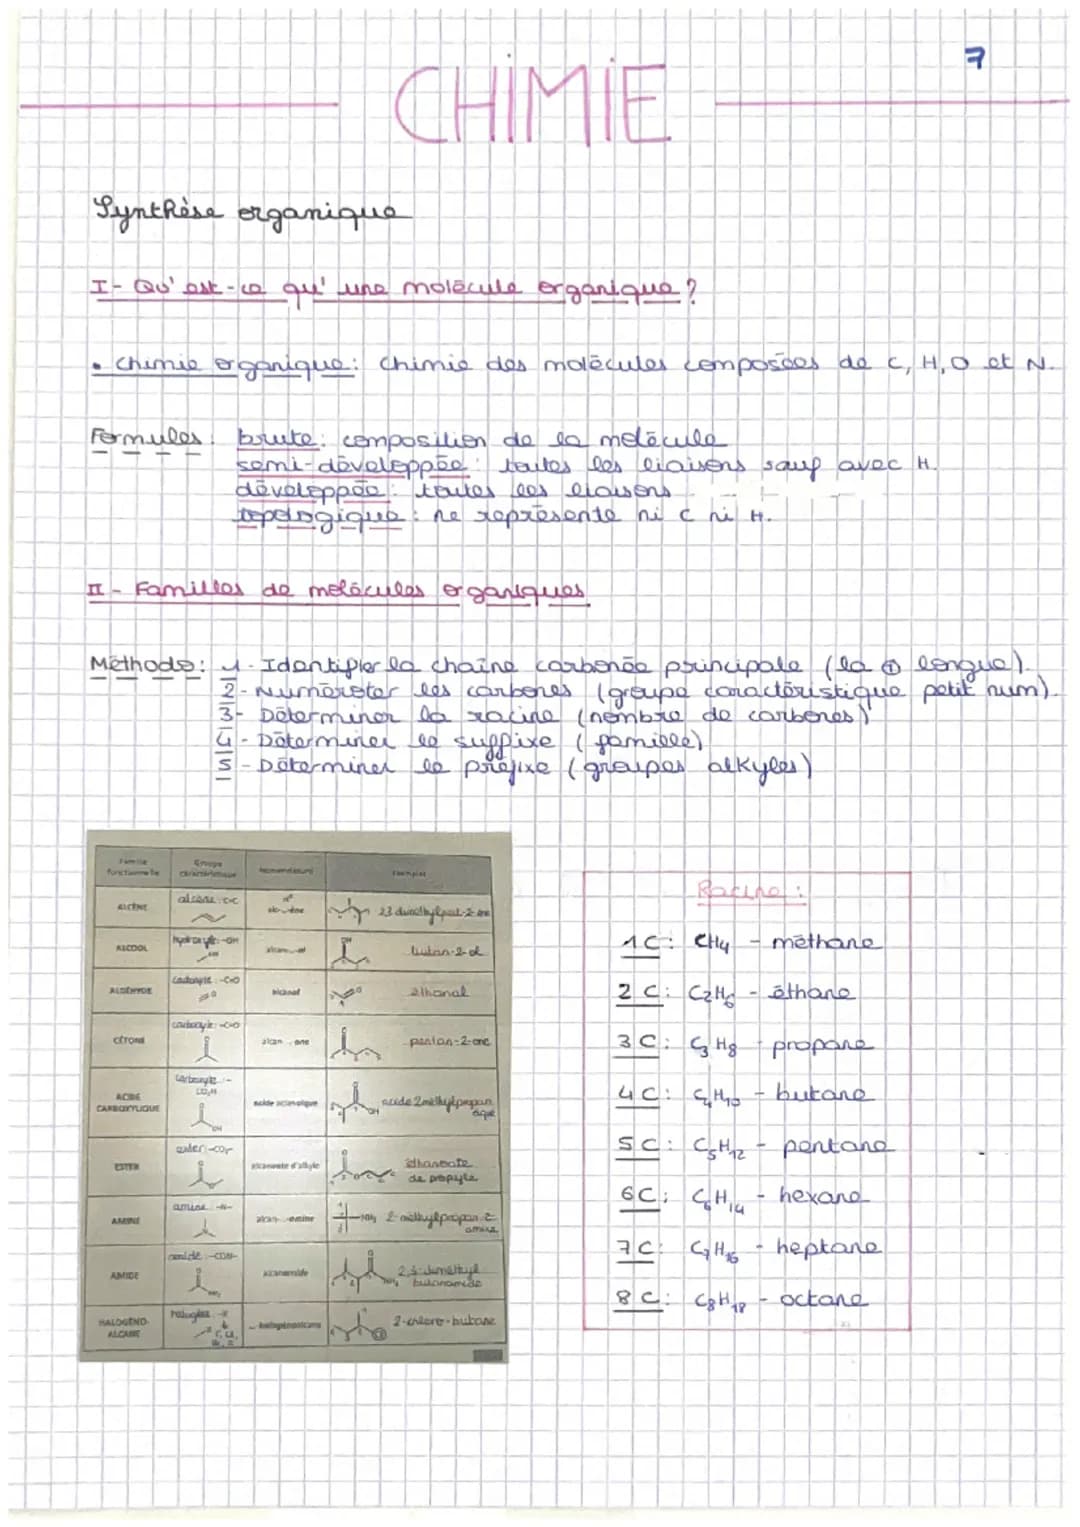 CHIMIE
7
Synthèse organique
I- Qu'est-ce qu'une molécule organique?
• chimie organique: chimie des molécules composées de C, H, O et N.
Formules: brute: composition de la molécule
semi-développée: toutes les liaisons sauf avec H.
développée: toutes les liaisons
topologique: ne représente ni C ni H.
II- Familles de molécules organiques
Méthode: 1- Identifier la chaîne carbonée principale (la ⊕ longue).
2- Numéroter les carbones (groupe caractéristique petit num).
3- Déterminer la racine (nombre de carbones)
4- Déterminer le suffixe (famille)
5- Déterminer le préfixe (groupes alkyles)
Famille fonctionnelle
Groupe caractéristique
Exemples
ALCÈNE
alcène: C=C
2,3 diméthylpent-2-ène
ALCOOL
hydroxyle: -OH
butan-2-ol
ALDÉHYDE
carbonyle: -C=O
alcanal
éthanal
CÉTONE
carbonyle: -C=O
alcan...one
pentan-2-one
ACIDE CARBOXYLIQUE
carboxyle: -CO₂H
acide alcanoïque
acide 2méthylpropanoïque
ESTER
ester: -CO₂-
alcanoate d'alkyle
éthanoate de propyle
AMINE
amine: -N-
alcan...amine
2-méthylpropan-2-amine
AMIDE
amide: -CON-
alcanamide
2,3-diméthylbutanamide
HALOGÉNO-ALCANE
halogène: -X
...halogénoalcane
2-chloro-butane
Racine:
1C: CH₄ - méthane
2C: C₂H₆ - éthane
3C: C₃H₈ - propane
4C: C₄H₁₀ - butane
5C: C₅H₁₂ - pentane
6C: C₆H₁₄ - hexane
7C: C₇H₁₆ - heptane
8C: C₈H₁₈ - octane